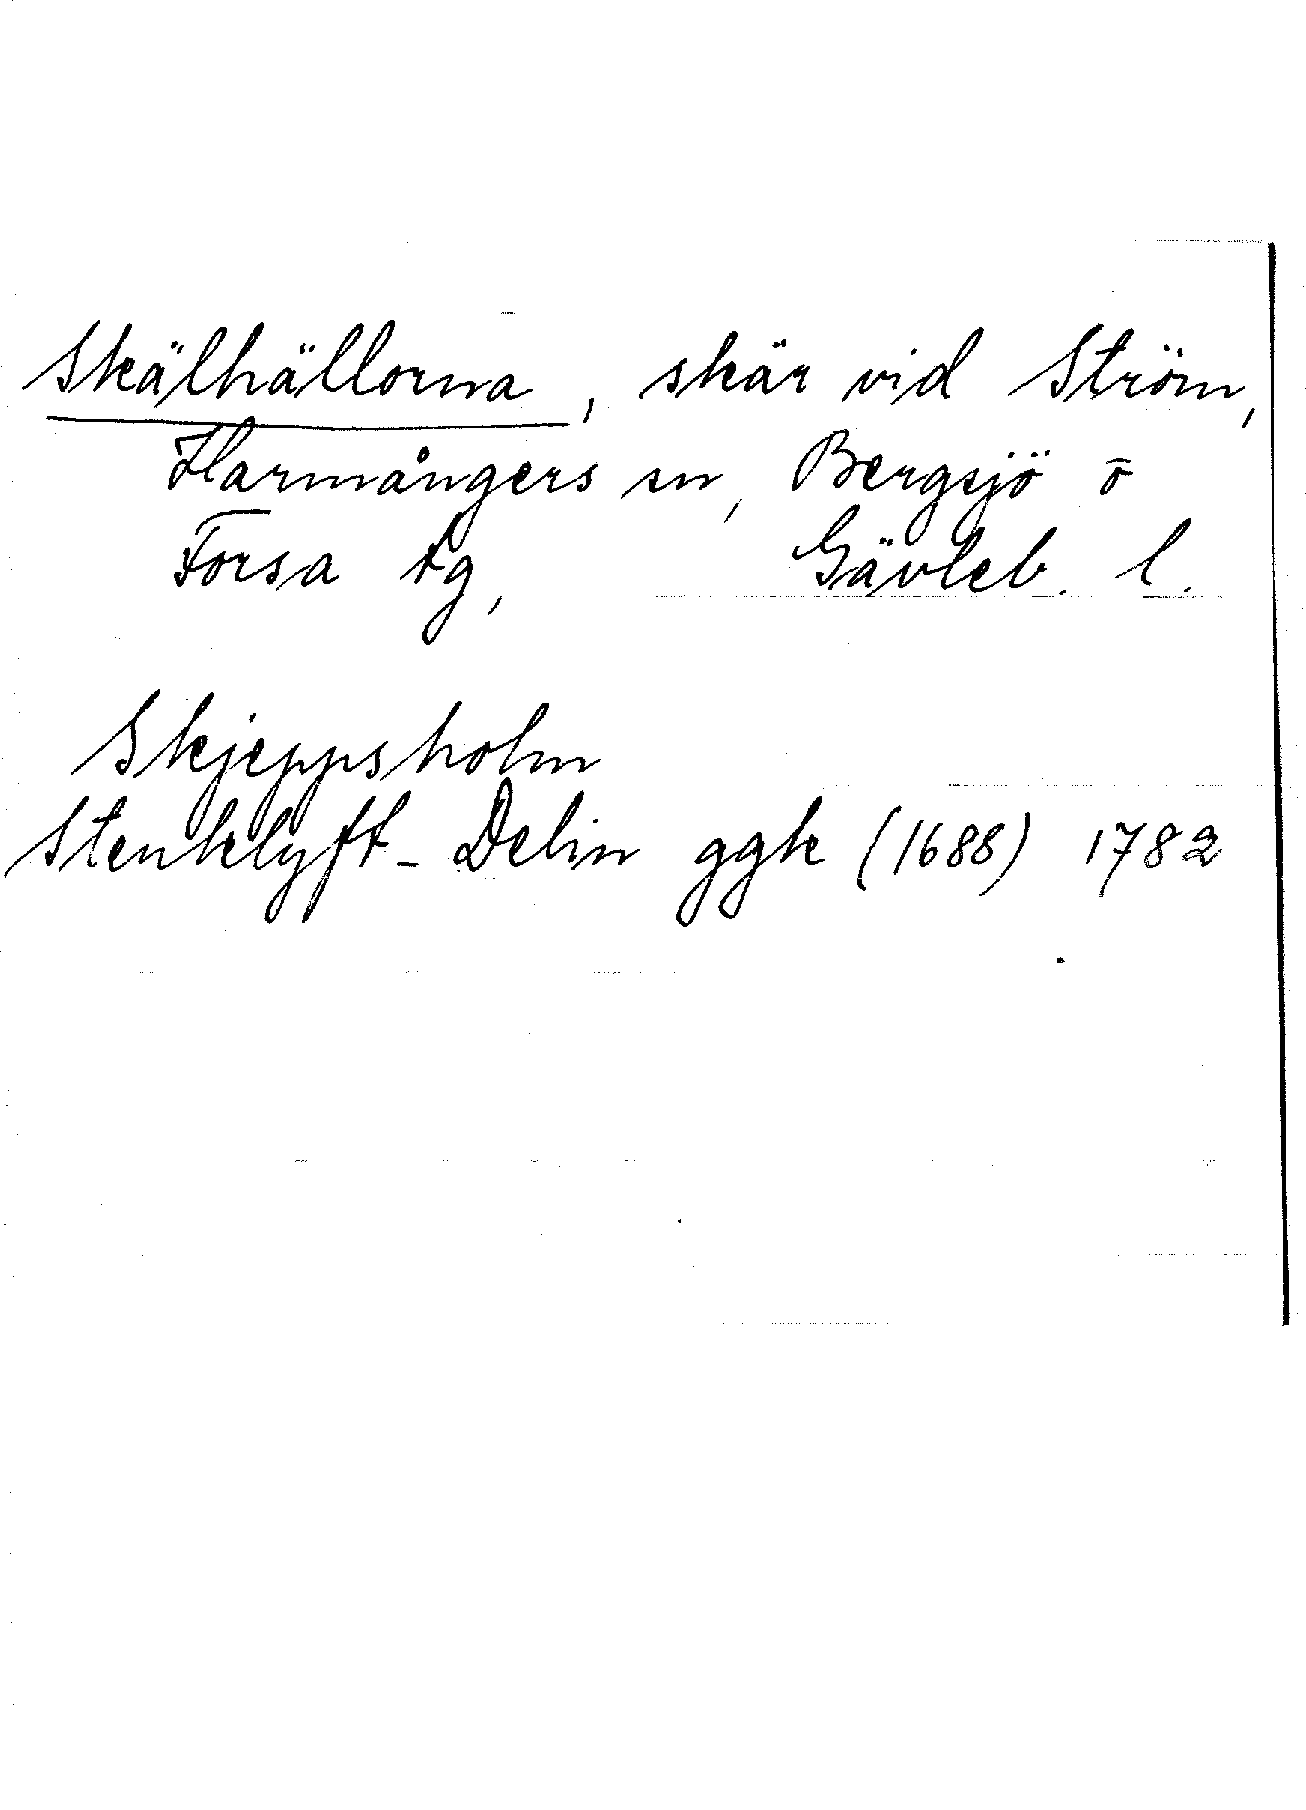 Skälhällorna, skär vid Ström,
Harmångers sn, Bergsjö o
Forsa tg, Gävleb. l.
Skjeppsholm
Stenklyft-Delin ggk (1688) 1782